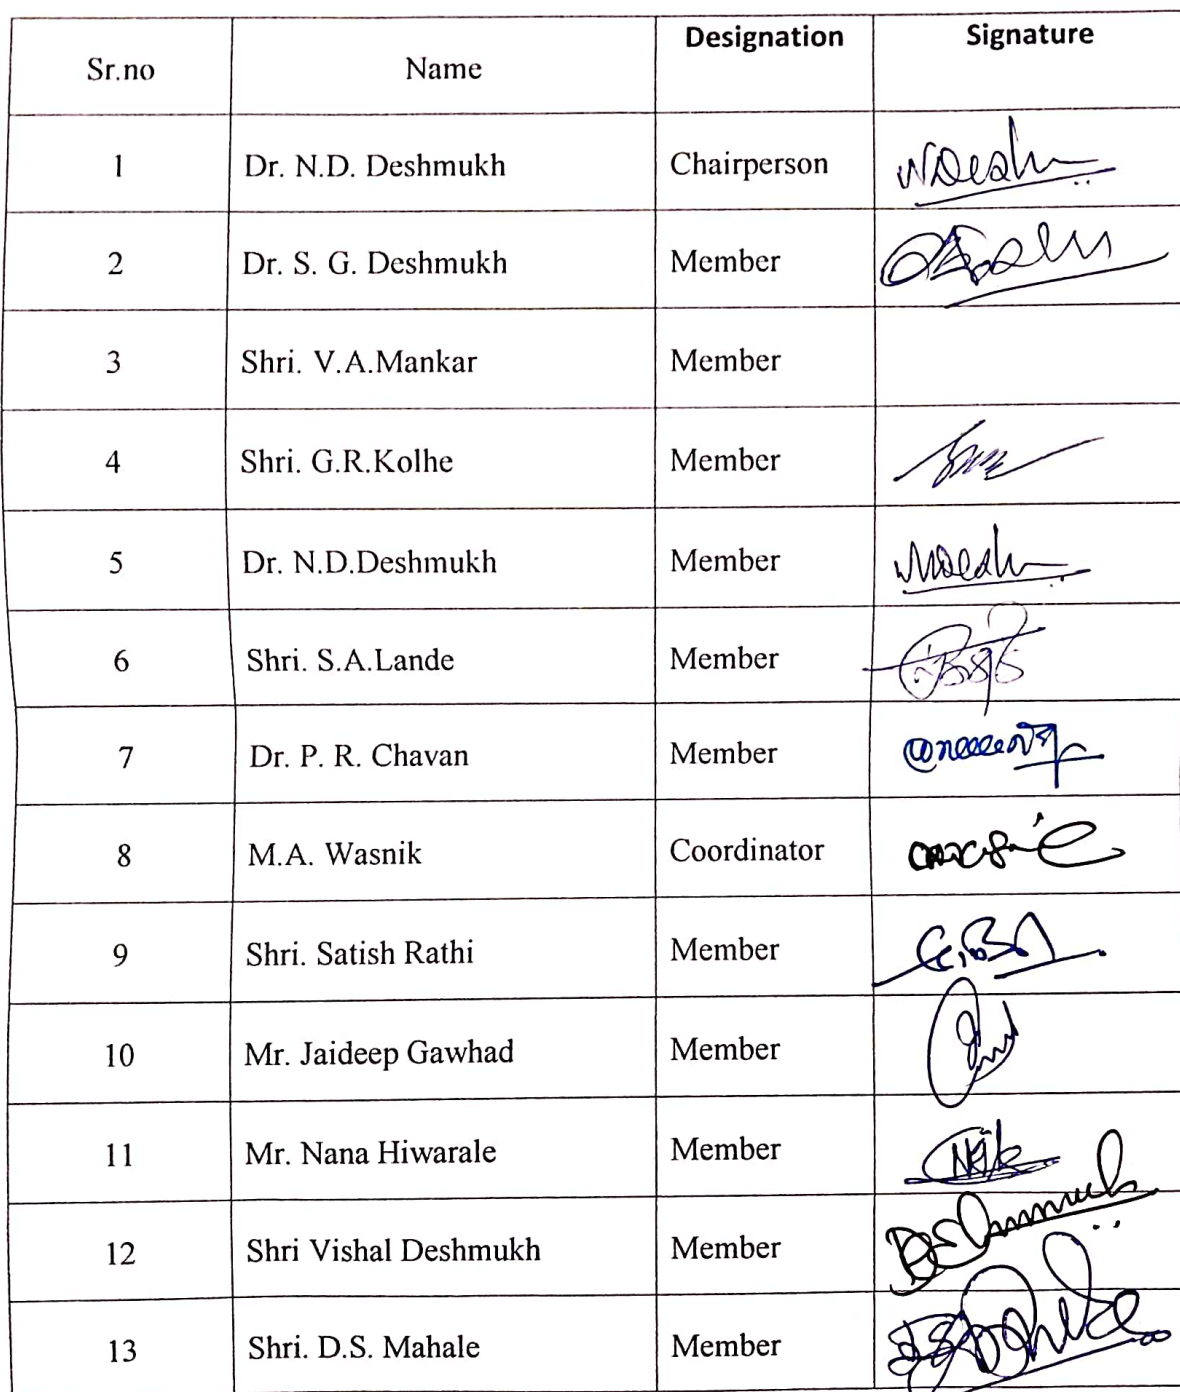 Sr.no Name Designation Signature
1 Dr. N.D. Deshmukh Chairperson
2 Dr. S. G. Deshmukh Member
3 Shri. V.A.Mankar Member
4 Shri. G.R.Kolhe Member
5 Dr. N.D.Deshmukh Member
6 Shri. S.A.Lande Member
7 Dr. P. R. Chavan Member
8 M.A. Wasnik Coordinator
9 Shri. Satish Rathi Member
10 Mr. Jaideep Gawhad Member
11 Mr. Nana Hiwarale Member
12 Shri Vishal Deshmukh Member Deshmukh
13 Shri. D.S. Mahale Member